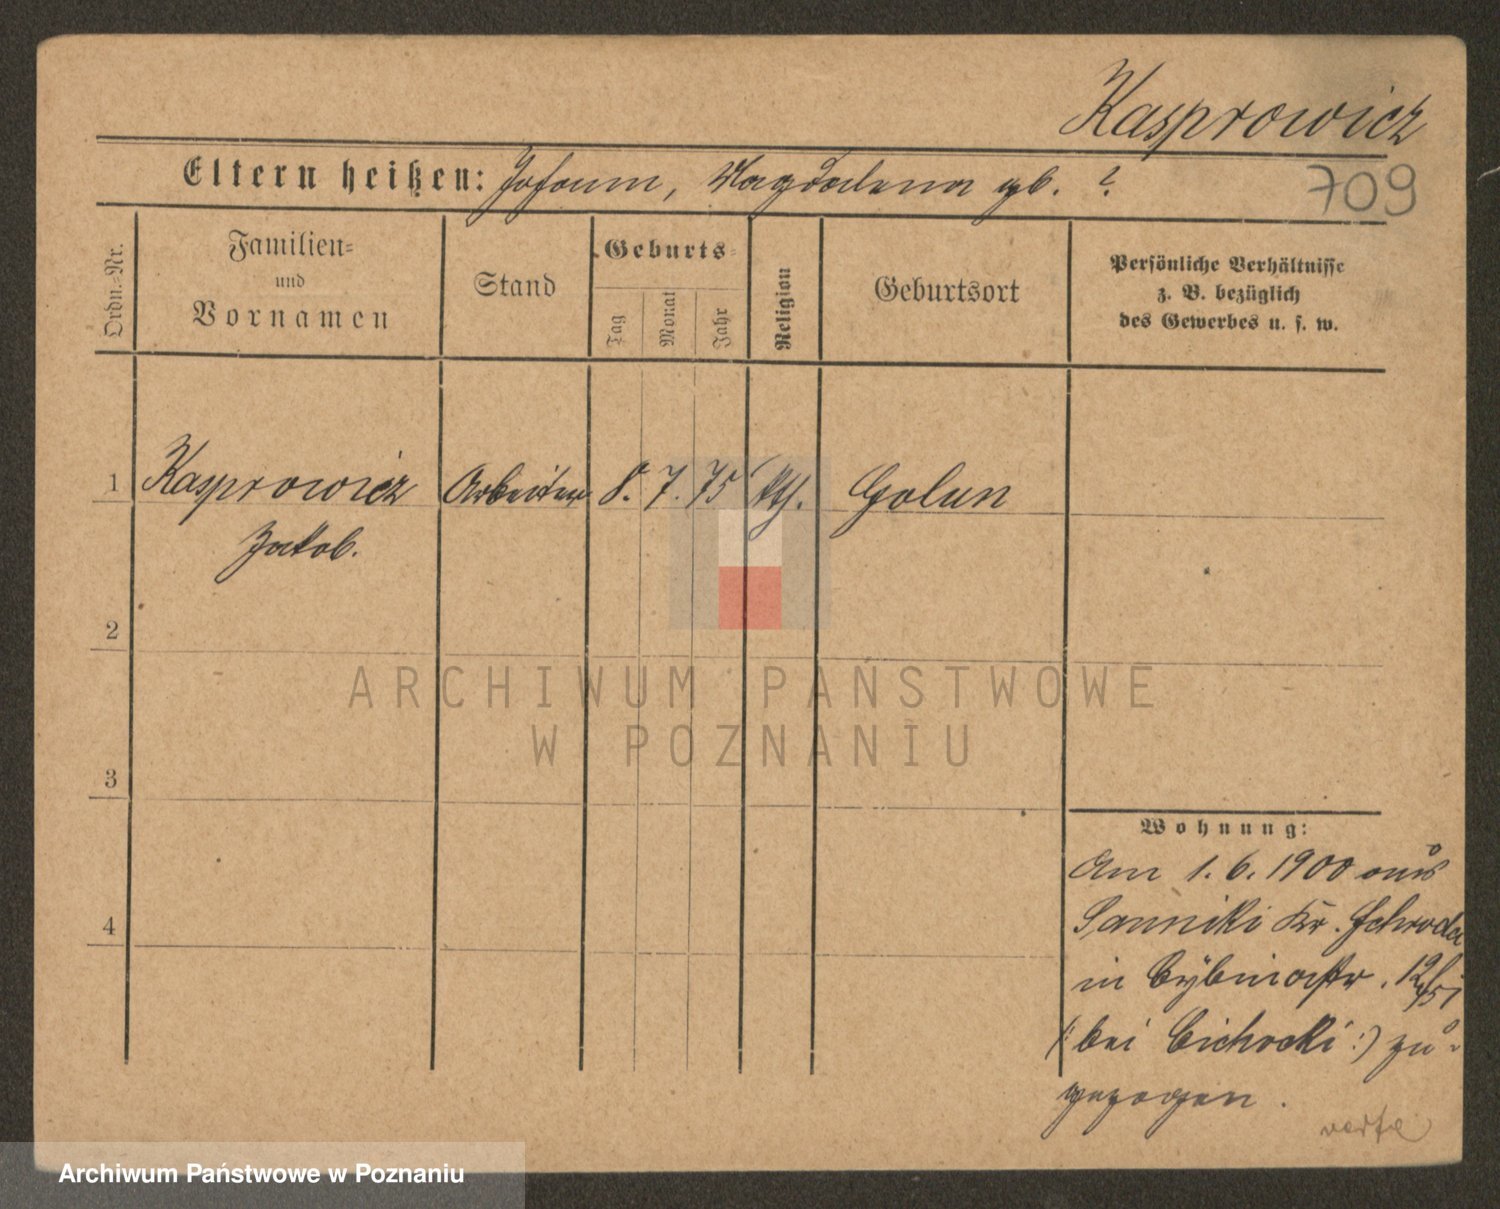 Kasprowicz
Eltern heißen: Johann, Magdalena gb. ?
709
Ordn.-Nr.
Familien-
und
Vornamen
Stand
Geburts-
Tag
Monat
Jahr
Religion
Geburtsort
Persönliche Verhältnisse
z. B. bezüglich
des Gewerbes u. s. w.
1 Kasprowicz Arbeiter 8. 7. 75 kth. Golun
Jakob.
2
3
4
ARCHIWUM PAŃSTWOWE
W POZNANIU
Wohnung:
Am 1. 6. 1900 aus
Sanniki Kr. Schroda
in
(: bei Cichocki :) zu-
gezogen.
verte
Archiwum Państwowe w Poznaniu